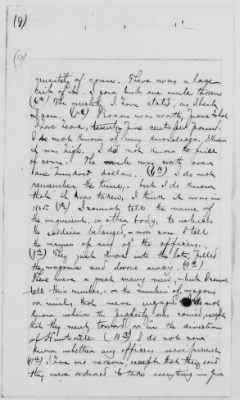 (9)
(9)
quantity of corn. There was a large
crib of it. I gave but one mule
(6th) The quantity I have stated, as I think
of corn. (7th) Bacon was worth, you
five cents per pound.
I do not know of my knowledge,
it was high. I do not know the price
of corn. The mule was worth over
one hundred dollars. (6th) I do not
remember the time, but I do know
that it was taken. I think it was in
1865. (7th) I cannot tell the name of
the regiment, or other body, to which
the soldiers belonged, nor can I tell
the names of any of the officers.
(8th) They just drove into the lot, filled
they wagons and drove away. (9th)
There were a great many mules, but I cannot
tell this number, or the number of wagons
or mules that were engaged. I do not
know where the property was carried, except
that they went toward, or in the direction
of Huntsville. (10th) I do not now
know whether any officers were present
(11th) I have no reason, except that they said
they were ordered to take everything